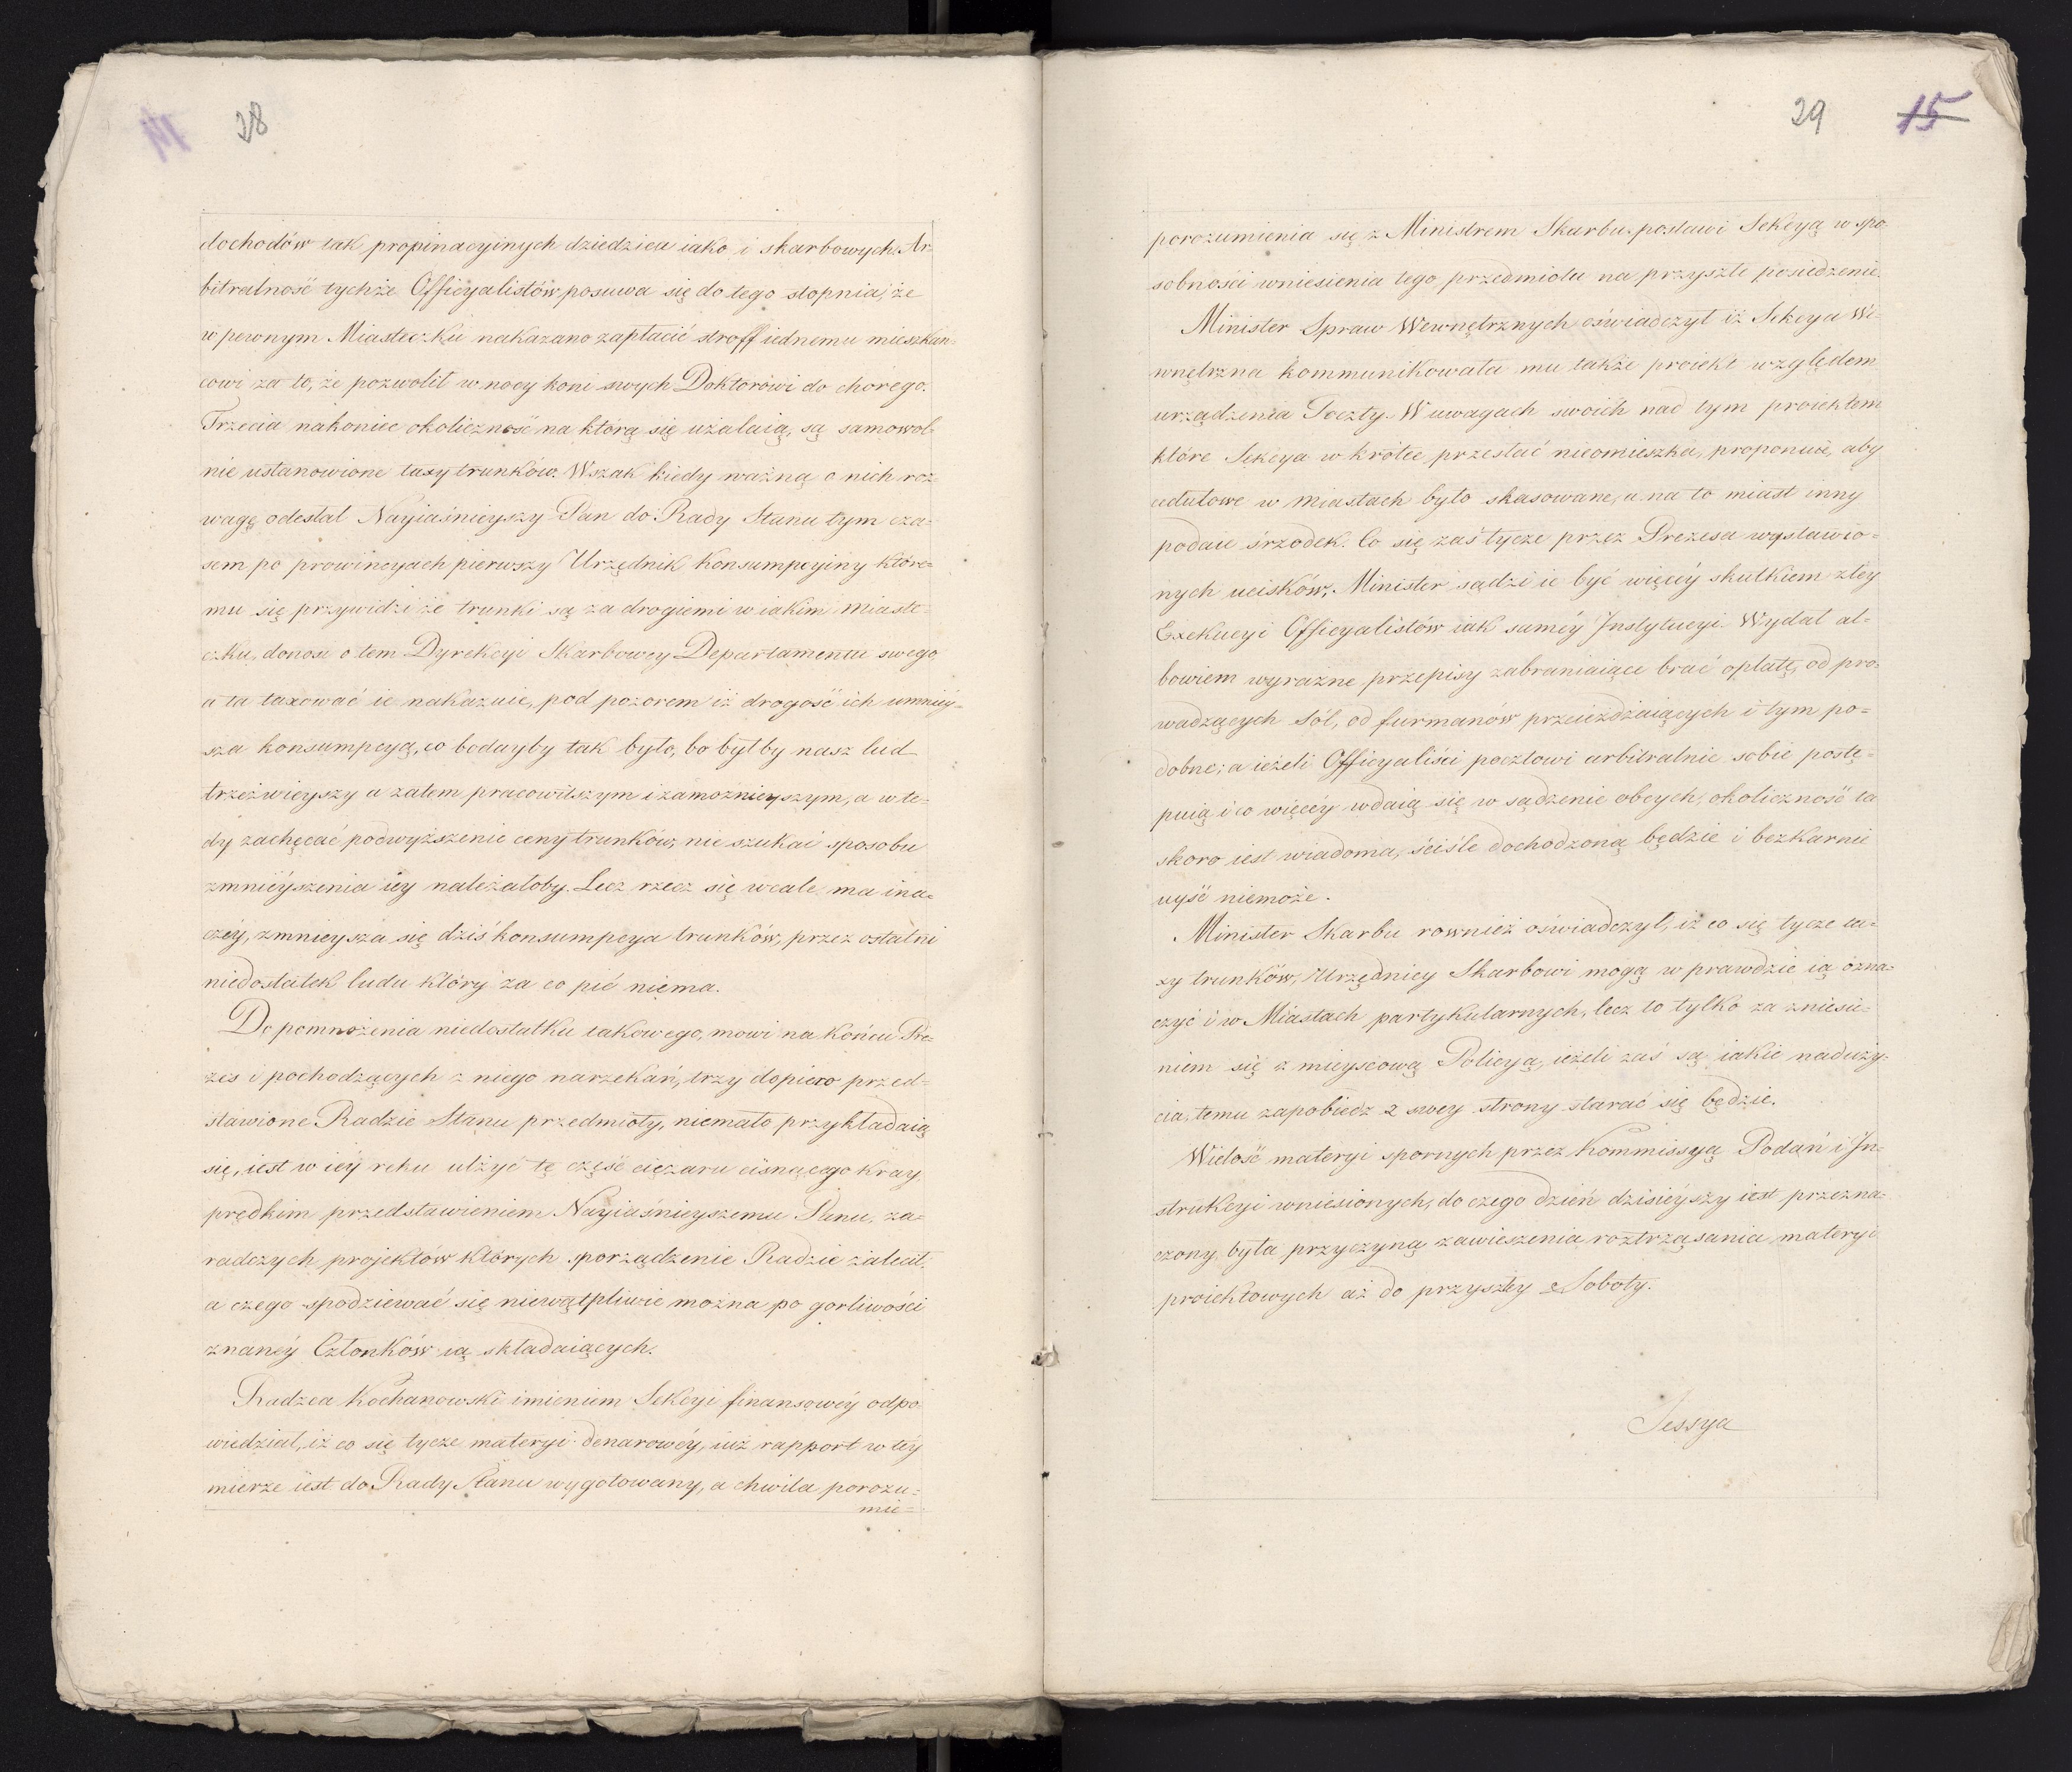 28
dochodów tak propinacyinych dziedzica iako i skarbowych. Ar-
bitralność tychże Officyalistów posuwa się do tego stopnia, że
w pewnym Miasteczku nakazano zapłacić stroff iednemu mieszkań-
cowi za to, że pozwolił w nocy koni swych Doktorowi do chorego.
Trzecia nakoniec okoliczność na którą się użalaią, są samowol-
nie ustanowione taxy trunków. Wszak kiedy ważną o nich roz-
wagę odesłał Nayiaśnieyszy Pan do Rady Stanu tym cza-
sem po prowincyach pierwszy Urzędnik Konsumpcyiny które-
mu się przywidzi że trunki są za drogiemi w iakim miaste-
czku, donosi o tem Dyrekcyi Skarbowey Departamentu swego,
a ta taxować ie nakazuie, pod pozorem iż drogość ich umniéy-
sza konsumpcyą, co bodayby tak było, bo byłby nasz lud
trzeźwieyszy a zatem pracowitszym i zamożnieyszym, a wte-
dy zachęcać podwyższenie ceny trunków, nie szukać sposobu
zmniéyszenia iey należałoby. Lecz rzecz się wcale ma ina-
czéy, zmnieysza się dziś konsumpcya trunków, przez ostatni
niedostatek ludu który za co pić niema.
Do pomnożenia niedostatku takowego, mowi na końcu Pre-
zes i pochodzących z niego narzekań, trzy dopiero przed-
stawione Radzie Stanu przedmioty, niemało przykładaią
się, iest w iéy ręku ulżyć tę część ciężaru cisnącego kray,
prędkim przedstawieniem Nayiaśnieyszemu Panu, za-
radczych projektów których sporządzenie Radzie zalecił,
a czego spodziewać się niewątpliwie można po gorliwości
znanéy Członków ią składaiących.
Radzca Kochanowski imieniem Sekcyi finansowéy odpo-
wiedział, iż co się tycze materyi denarowéy, iuż rapport w téy
mierze iest do Rady Stanu wygotowany, a chwila porozu-
mie-
29
15
porozumienia się z Ministrem Skarbu postawi Sekcyą w spo-
sobności wniesienia tego przedmiotu na przyszłe posiedzenie.
Minister Spraw Wewnętrznych oświadczył iż Sekcya We-
wnętrzna kommunikowała mu także proiekt względem
urządzenia Poczty. W uwagach swoich nad tym proiektem
które Sekcya w krótce przesłać nieomieszka, proponuie, aby
cedułowe w miastach było skasowane, a na to miast inny
podaie śrzodek. Co się zaś tycze przez Prezesa wystawio-
nych ucisków, Minister sądzi ie być więcéy skutkiem złey
Exekucyi Officyalistów iak saméy Instytucyi. Wydał al-
bowiem wyraźne przepisy zabraniaiące brać opłatę, od pro-
wadzących sól, od furmanów przeieżdżaiących i tym po-
dobne; a ieżeli Officyaliści pocztowi arbitralnie sobie postę-
puią i co więcéy wdaią się w sądzenie obcych, okoliczność ta
skoro iest wiadoma, ściśle dochodzoną będzie i bezkarnie
uyść niemoże.
Minister Skarbu rownież oświadczył, iż co się tycze ta-
xy trunków, Urzędnicy Skarbowi mogą w prawdzie ią ozna-
czyć i w Miastach partykularnych, lecz to tylko za zniesie-
niem się z mieyscową Policyą, ieżeli zaś są iakie naduży-
cia, temu zapobiedz z swey strony starać się będzie.
Wielość materyi spornych przez Kommissyą Podań i In-
strukcyi wniesionych, do czego dzień dzisiéyszy iest przezna-
czony, była przyczyną zawieszenia roztrząsania materyi
proiektowych aż do przyszłey Soboty.
Sessya